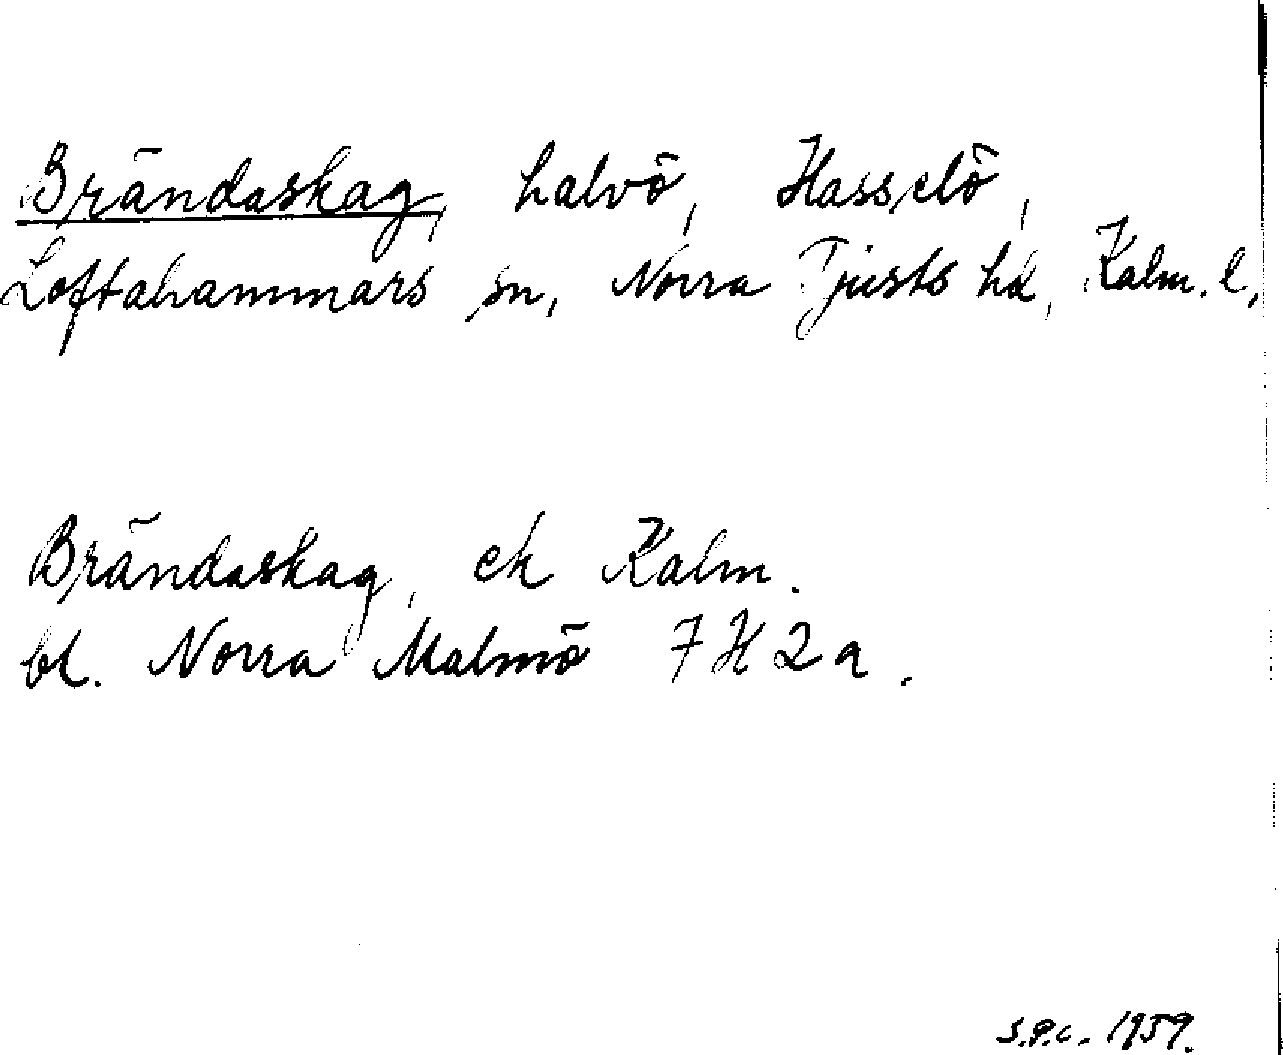 Brändaskag, halvö, Hasselö,
Loftahammars sn, Norra Tjusts hd, Kalm. l.
Brändaskag, ek Kalm.
bl. Norra Malmö 7H2a.
S.P.C. 1959.